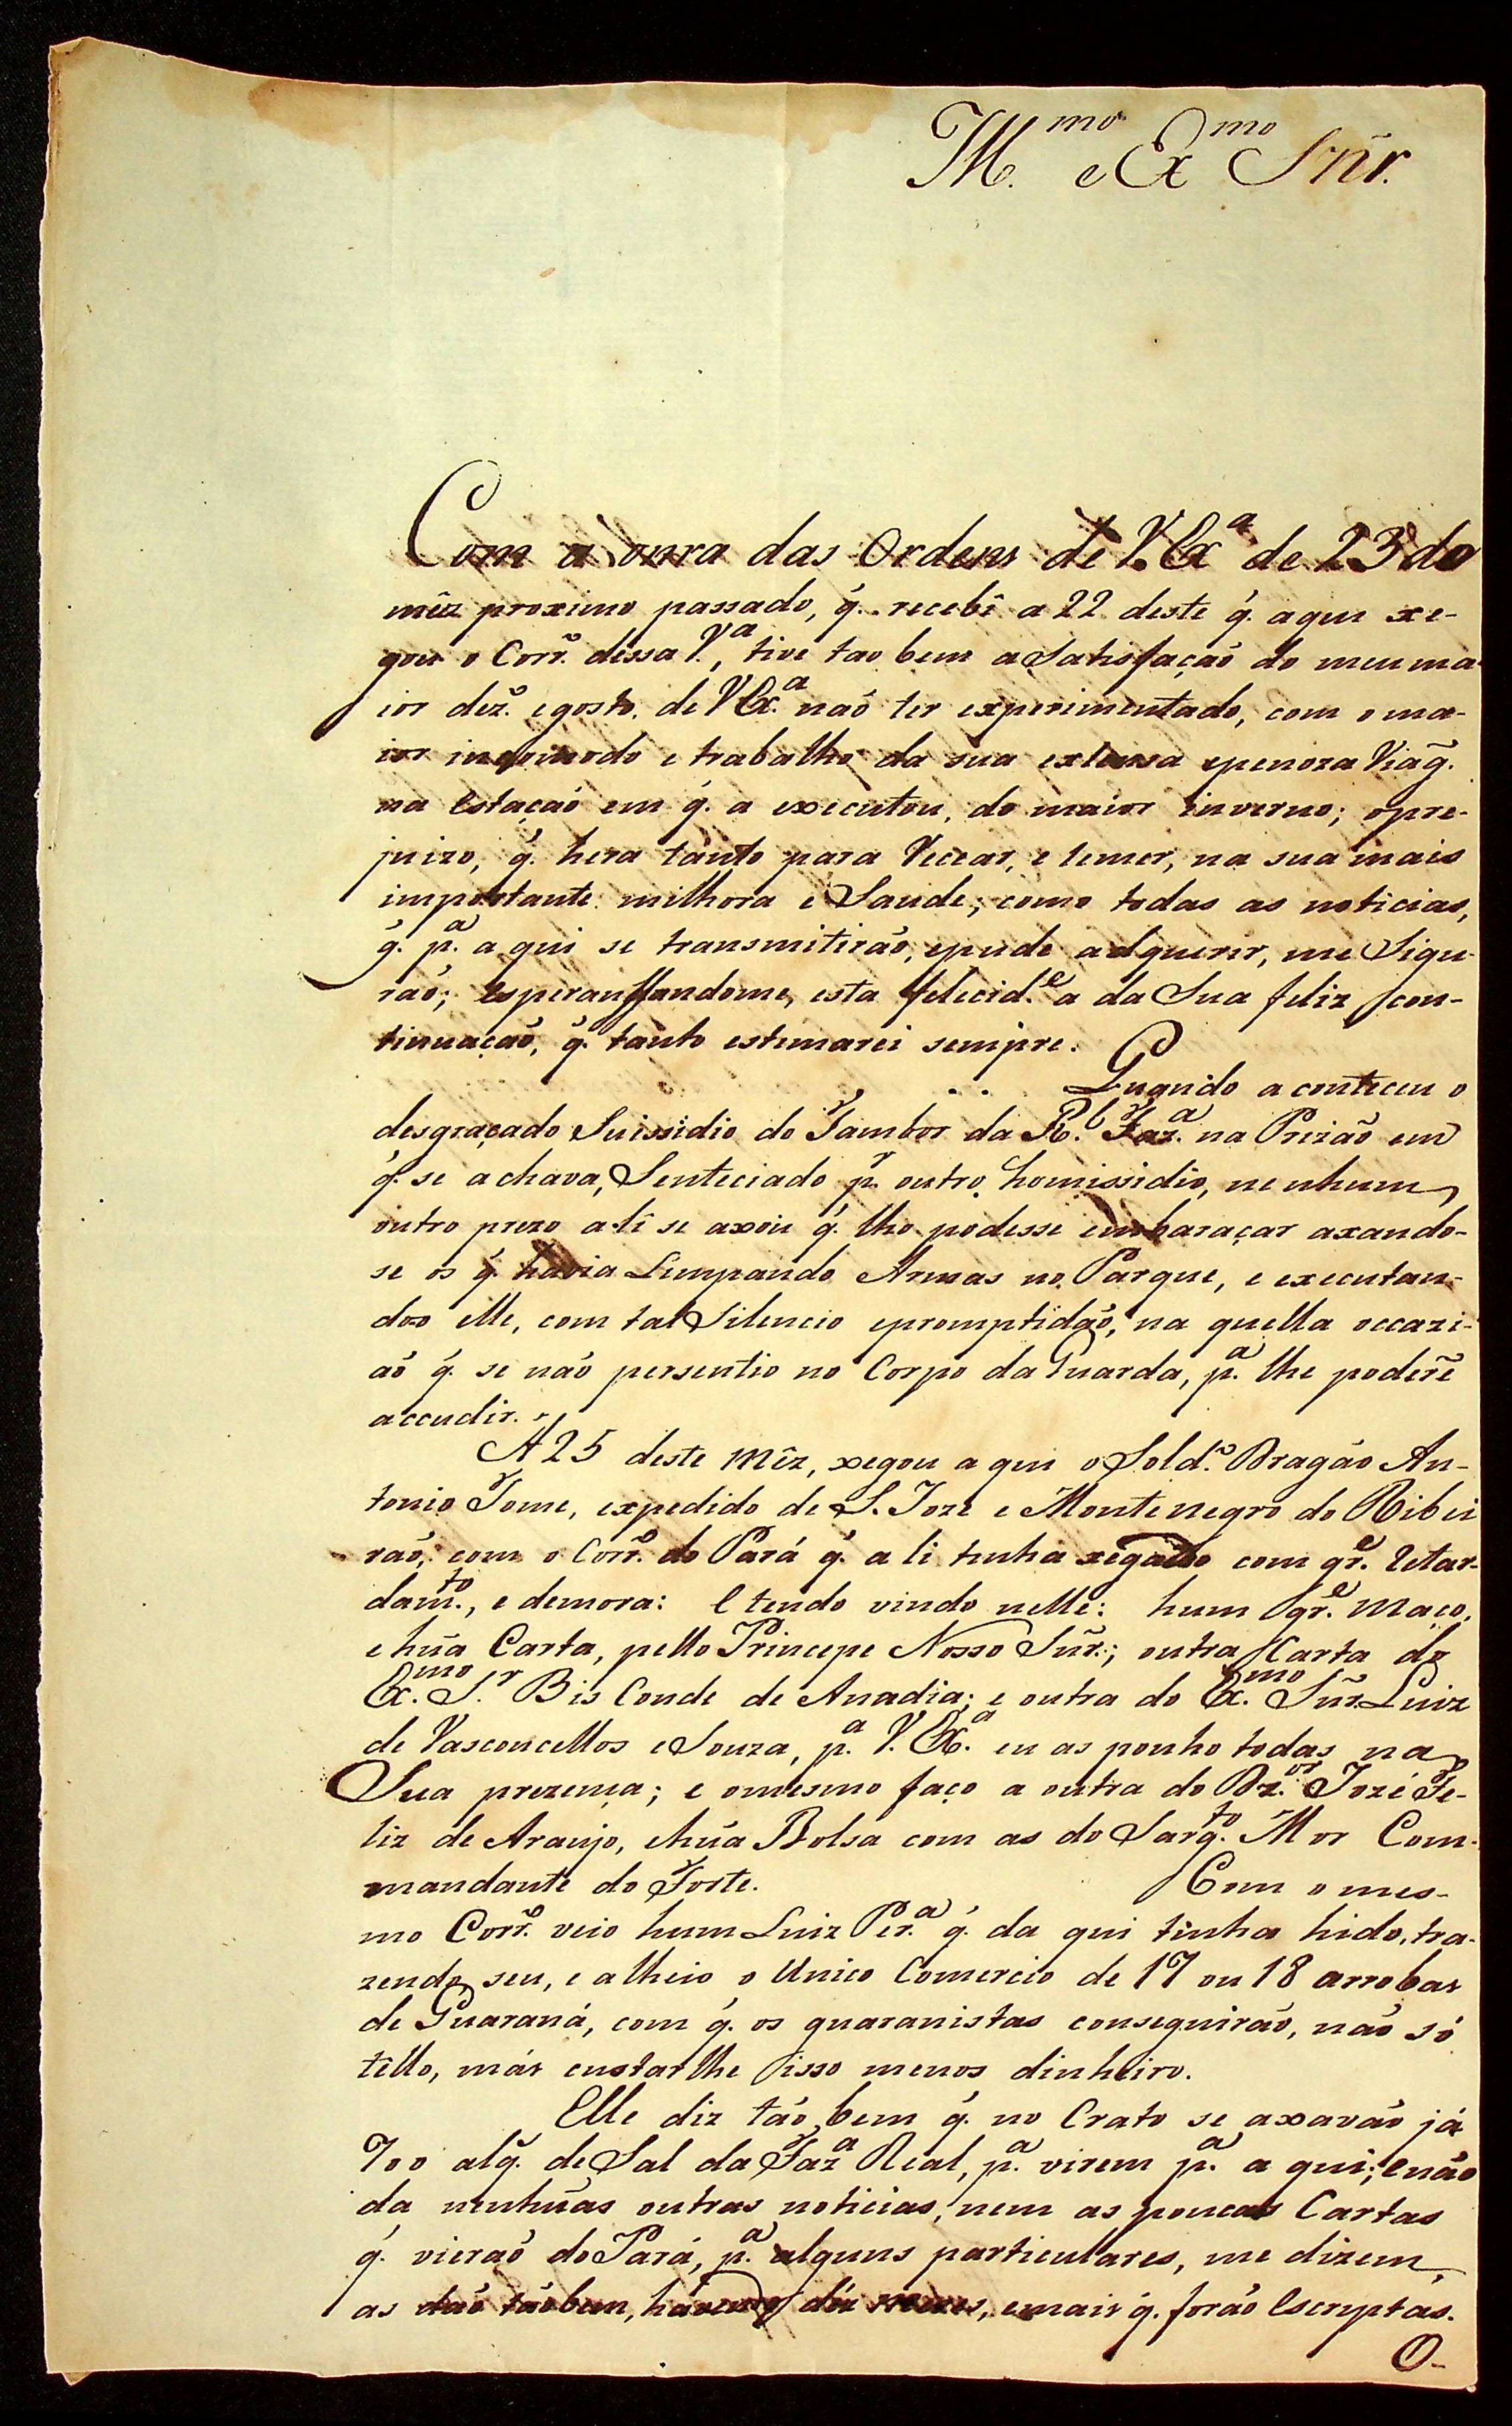 Ill.mo e Ex.mo Snr.
Com a onra das Ordens de V. Ex.a de 23 do
mêz proximo passado, q. recebî a 22 deste q. aqui xe-
gou o Corr.o dessa V.a, tive tao bem a Satisfação do meu ma-
ior dez.o e gosto, de V Ex.a naõ ter experimentado, com o ma-
ior incomodo e trabalho da sua extensa e penoza Viag.
na Estação em q. a executou, do maior inverno; o pre-
juizo, q. hera tanto para Recear, e temer, na sua mais
importante milhora e Saude; como todas as noticias,
q. p.a aqui se transmitirão, e pude adquerir, me Sigu-
rão; Esperanssandome, esta felecid.e a da Sua feliz con-
tinuação, q. tanto estimarei sempre.
Quando aconteceu o
desgraçado Suissidio do Tambor da R.l Faz.a na Prizão em
q. se achava, Senteciado p.r outro homissidio, nenhum
outro prezo alî se axou q. lho podesse embaraçar axando-
se os q. havia Limpando Armas no Parque, e executan-
doo elle, com tal Silencio e promptidão, na quella occazi-
aõ q. se não persentio no Corpo da Guarda, p.a lhe poderẽ
accudir.
A 25 deste Mêz, xegou aqui o Sold.o Dragão An-
tonio Tome, expedido de S. Joze e Montenegro do Ribei
rão, com o Corr.o do Pará q. ali tinha xegado com gr.e Retar-
dam.to, e demora: E tendo vindo nelle: hum gr.e Maço,
e hũa Carta, pello Principe Nosso Snr.; outra Carta do
Ex.mo S.r Bis Conde de Anadia; e outra do Ex.mo Snr. Luiz
de Vasconcellos e Souza, p.a V. Ex.a eu as ponho todas na
Sua prezença; e o mesmo faço a outra do Dz.or Jozé Fe-
liz de Araujo, e hũa Bolsa com as do Sarg.to Mor Com-
mandante do Forte. Com o mes-
mo Corr.o veio hum Luiz Per.a q. da qui tinha hido, tra-
zendo seu, e alheio o Unico Comercio de 17 ou 18 arrobas
de Guaraná, com q. os guaranistas conseguirão, não só
têllo, más custarlhe isso menos dinheiro.
Elle diz tão bem q. no Crato se axavão já
700 alq. de Sal da Faz.a Real, p.a virem p.a aqui; E não
da nenhũas outras noticias, nem as poucas Cartas
q. vieraõ do Pará, p.a alguns particulares, me dizem,
as dão tão bem, havendo dôz mezes, e mais q. forão Escriptas.
O-